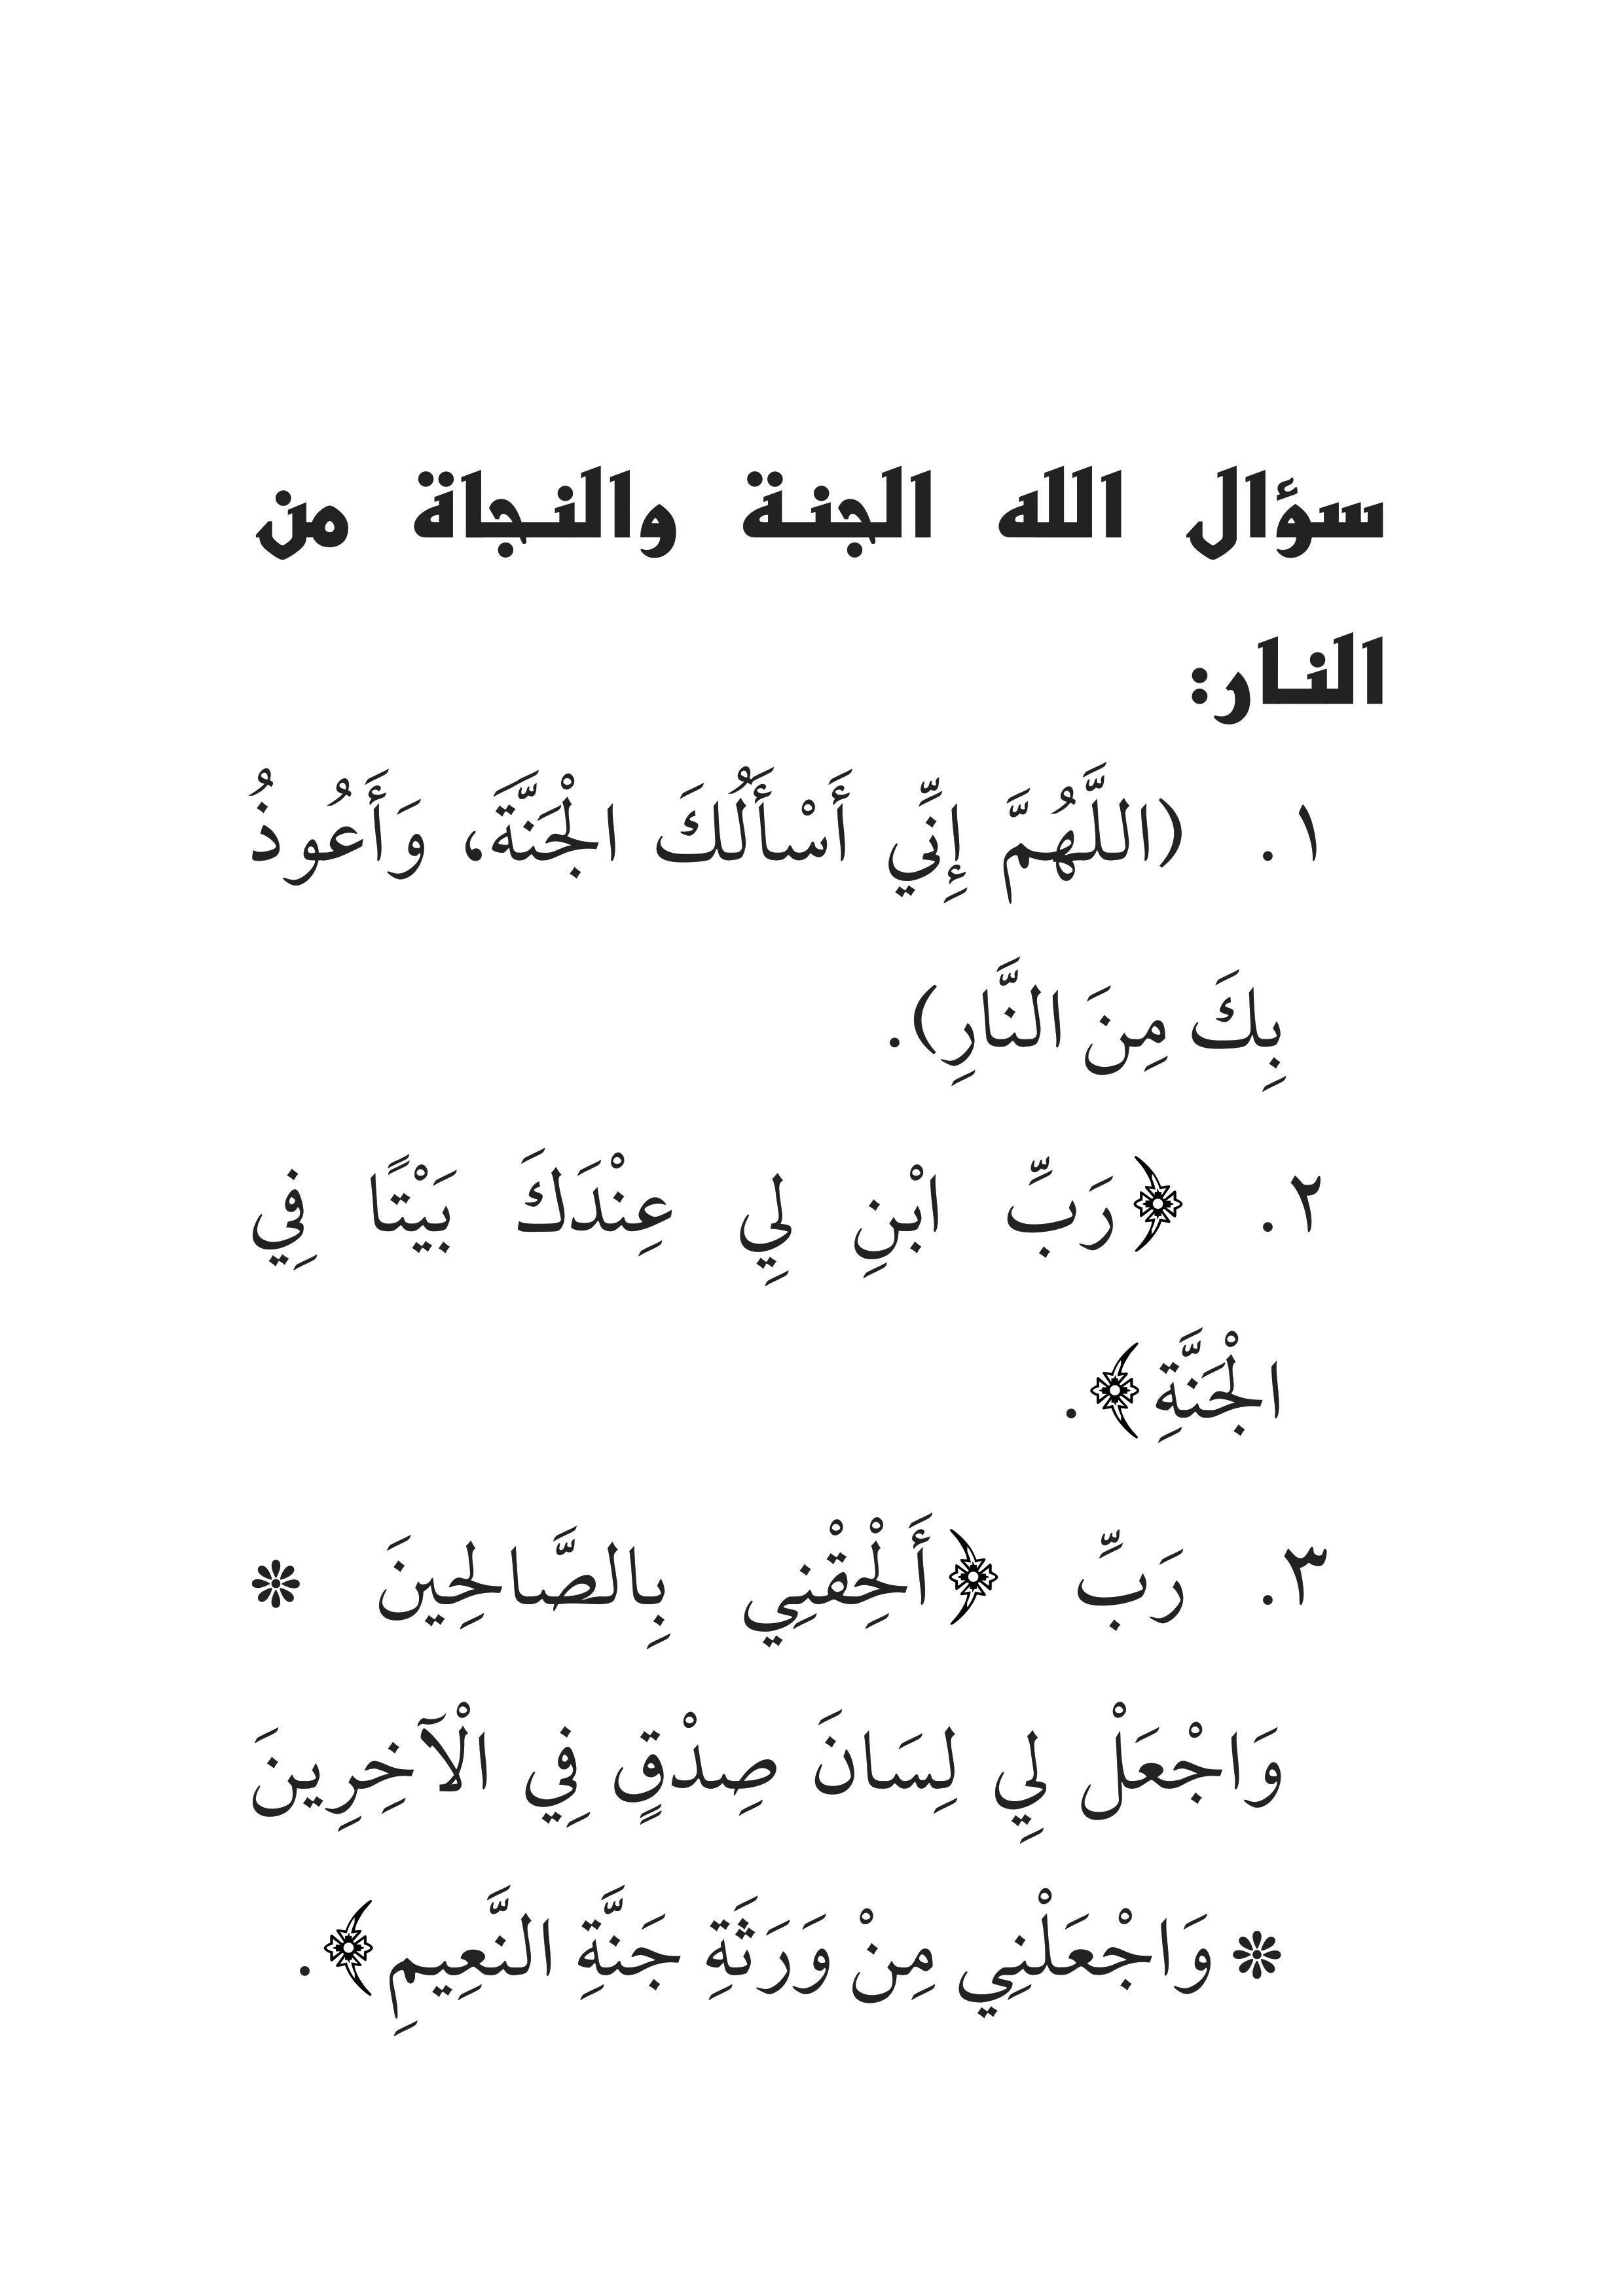 سؤال الله الجنة والنجاة من
النار:
١. (اللَّهُمَّ إِنِّي أَسْأَلُكَ الْجَنَّةَ، وَأَعُوذُ
بِكَ مِنَ النَّارِ).
٢. ﴿رَبِّ ابْنِ لِي عِنْدَكَ بَيْتًا فِي
الْجَنَّةِ﴾.
٣. رَبِّ ﴿أَلْحِقْنِي بِالصَّالِحِينَ ❇
وَاجْعَلْ لِي لِسَانَ صِدْقٍ فِي الْآخِرِينَ
❇ وَاجْعَلْنِي مِنْ وَرَثَةِ جَنَّةِ النَّعِيمِ﴾.